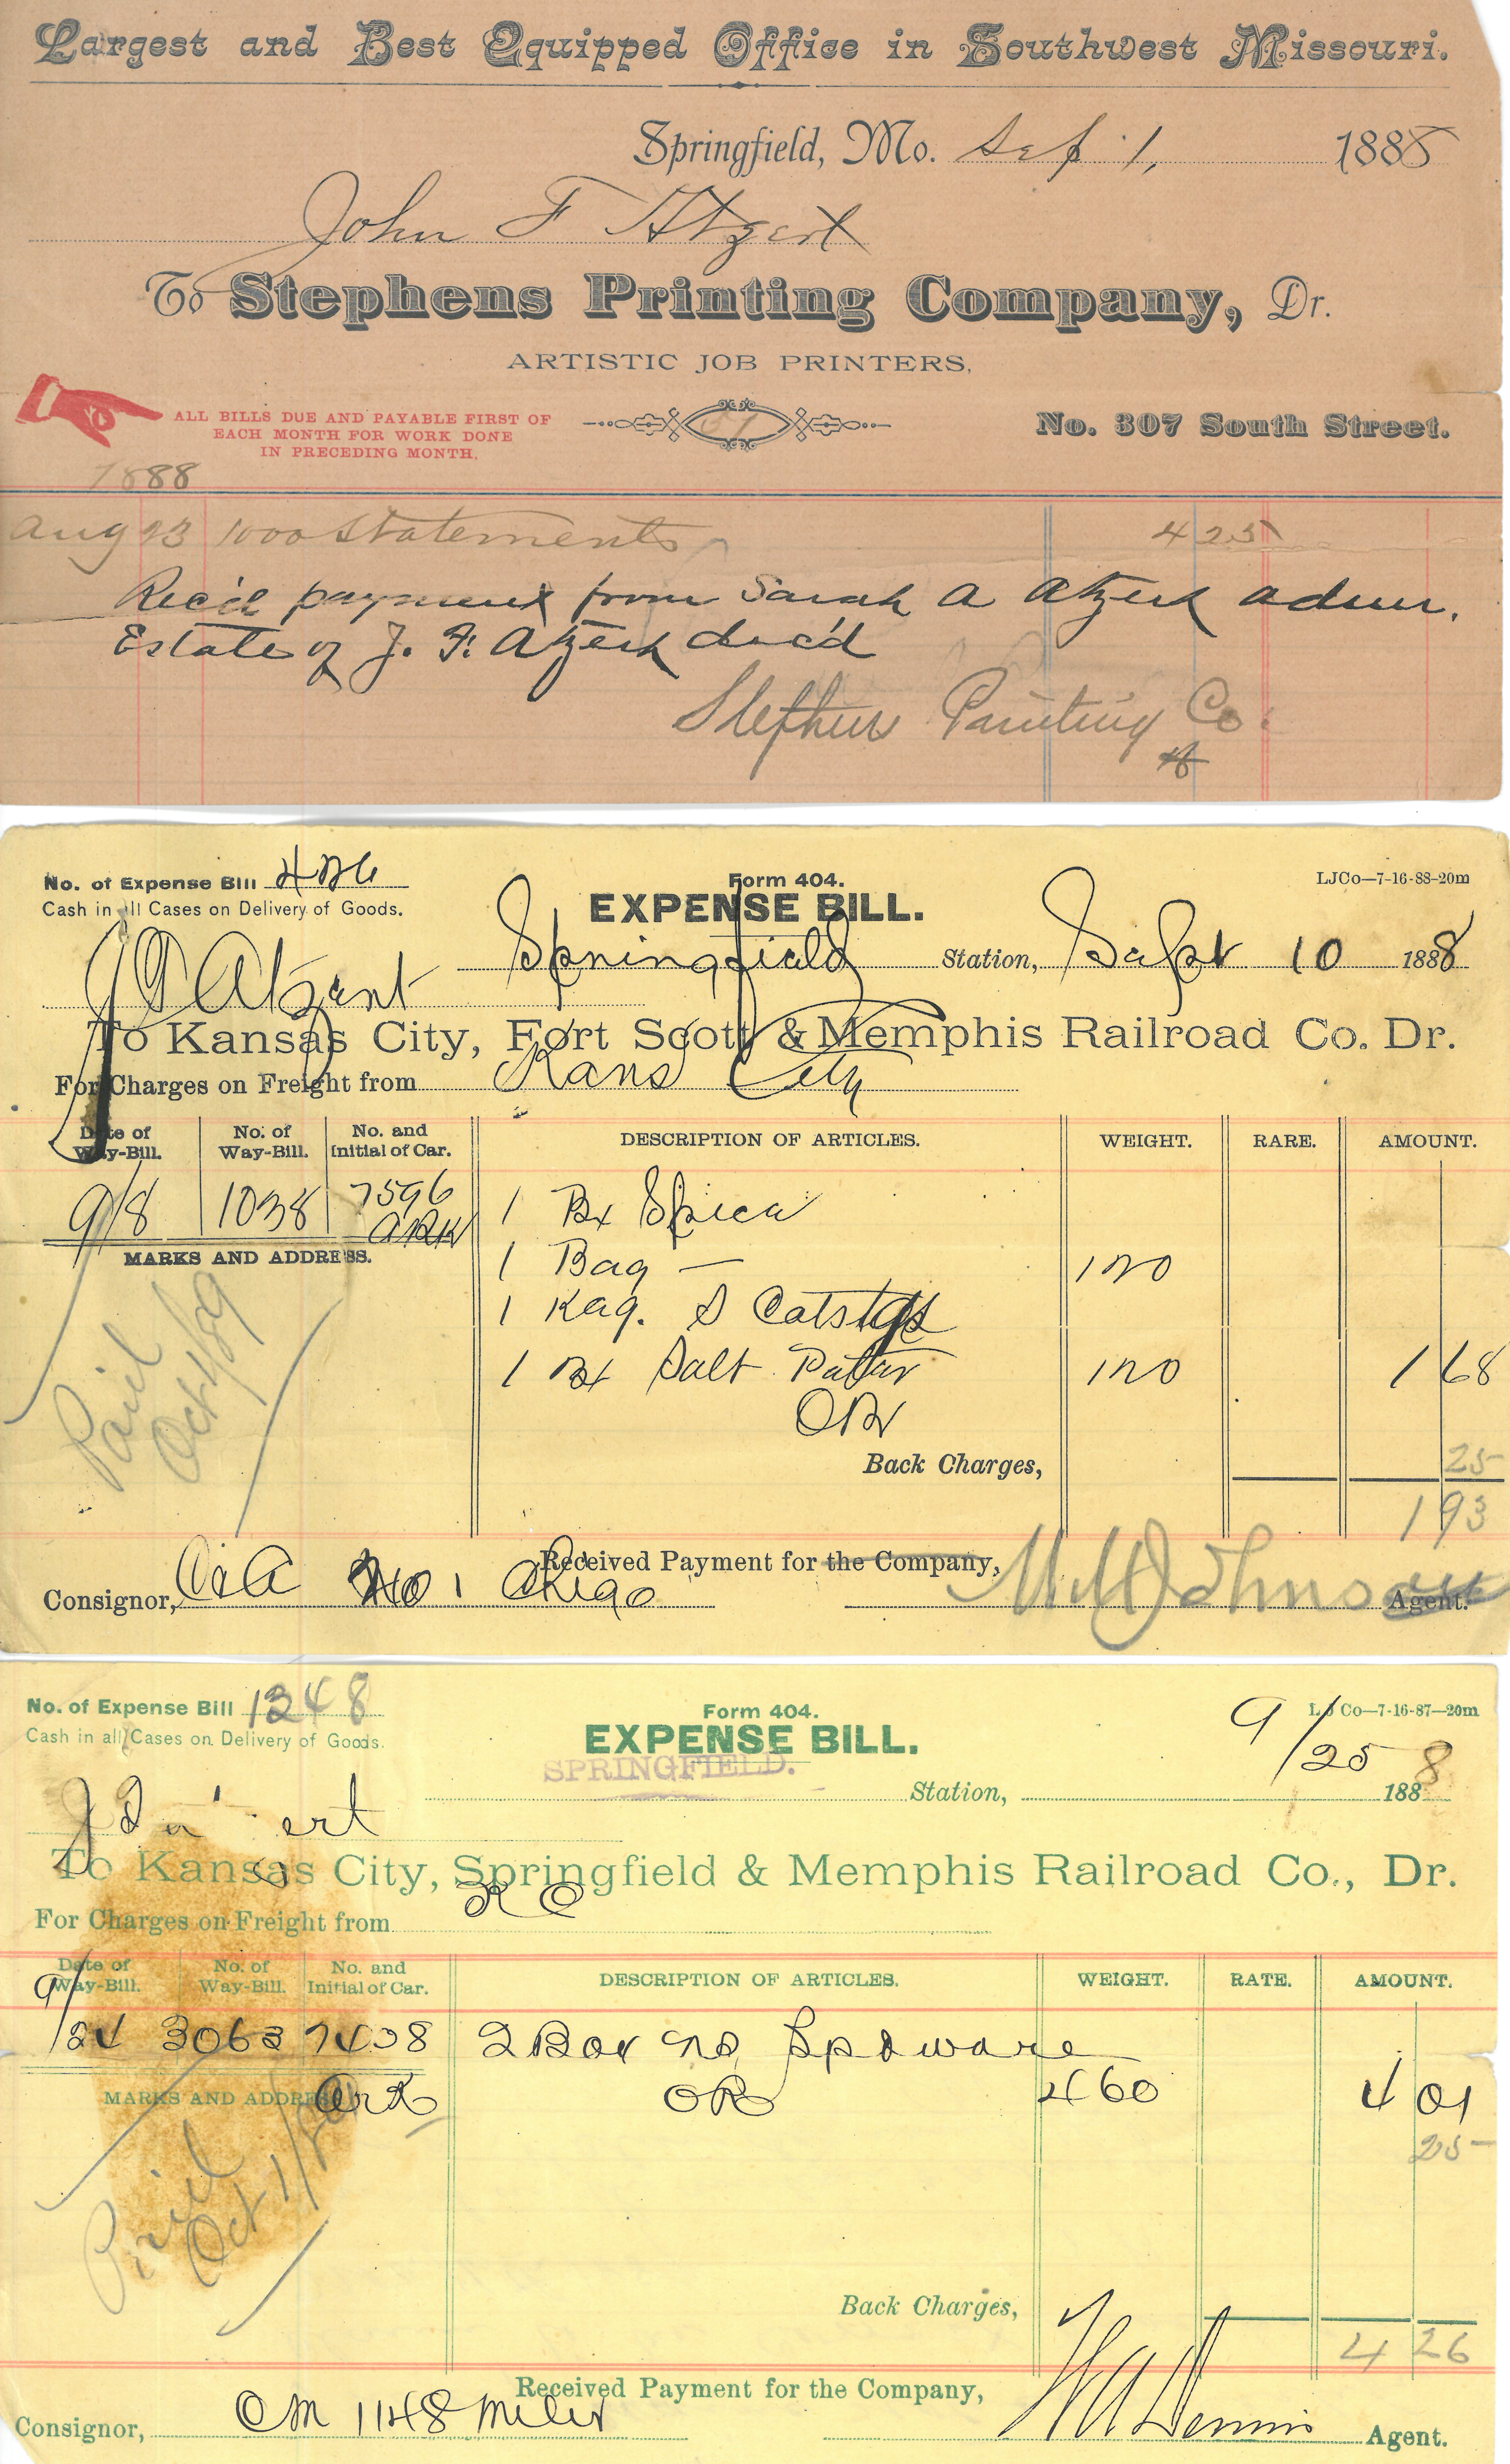 Largest and Best Equipped Office in Southwest Missouri.
Springfield, Mo. Sep 1, 1888
John F Atzert
To Stephens Printing Company, Dr.
ARTISTIC JOB PRINTERS.
ALL BILLS DUE AND PAYABLE FIRST OF
EACH MONTH FOR WORK DONE
IN PRECEDING MONTH.
51
No. 307 South Street.
1888
Aug 23 1000 Statements 4 25
Rec'd payment from Sarah A Atzert admr.
Estate of J. F. Atzert dec'd
Stephens Printing Co.
No. of Expense Bill 426
Form 404.
LJCo—7-16-88-20m
Cash in all Cases on Delivery of Goods.
EXPENSE BILL.
Springfield Station, Sept 10 1888
J F Atzert
To Kansas City, Fort Scott & Memphis Railroad Co. Dr.
For Charges on Freight from Kans City
Date of Way-Bill. No. of Way-Bill. No. and Initial of Car. DESCRIPTION OF ARTICLES. WEIGHT. RARE. AMOUNT.
9/8 1038 7596 1 Bx Spices
MARKS AND ADDRESS.
1 Bag — 120
1 Keg.
1 Bx Salt 120 1 68
OR
Paid Oct 1/89
Back Charges, 25
1 93
Received Payment for the Company,
Consignor, No 1
Johnson Agent.
No. of Expense Bill 1348
Form 404.
LJCo—7-16-87—20m
Cash in all Cases on Delivery of Goods.
EXPENSE BILL.
SPRINGFIELD.
Station, 9/25 1888
J F ert
To Kansas City, Springfield & Memphis Railroad Co., Dr.
For Charges on Freight from K C
Date of Way-Bill. No. of Way-Bill. No. and Initial of Car. DESCRIPTION OF ARTICLES. WEIGHT. RATE. AMOUNT.
9/24 3063 7408 2 Box
MARKS AND ADDRESS. Ark OR 460 4 01
25
Paid Oct 1/89
Back Charges,
4 26
Received Payment for the Company,
Consignor, CM 1148 Miles
W A Dennis Agent.